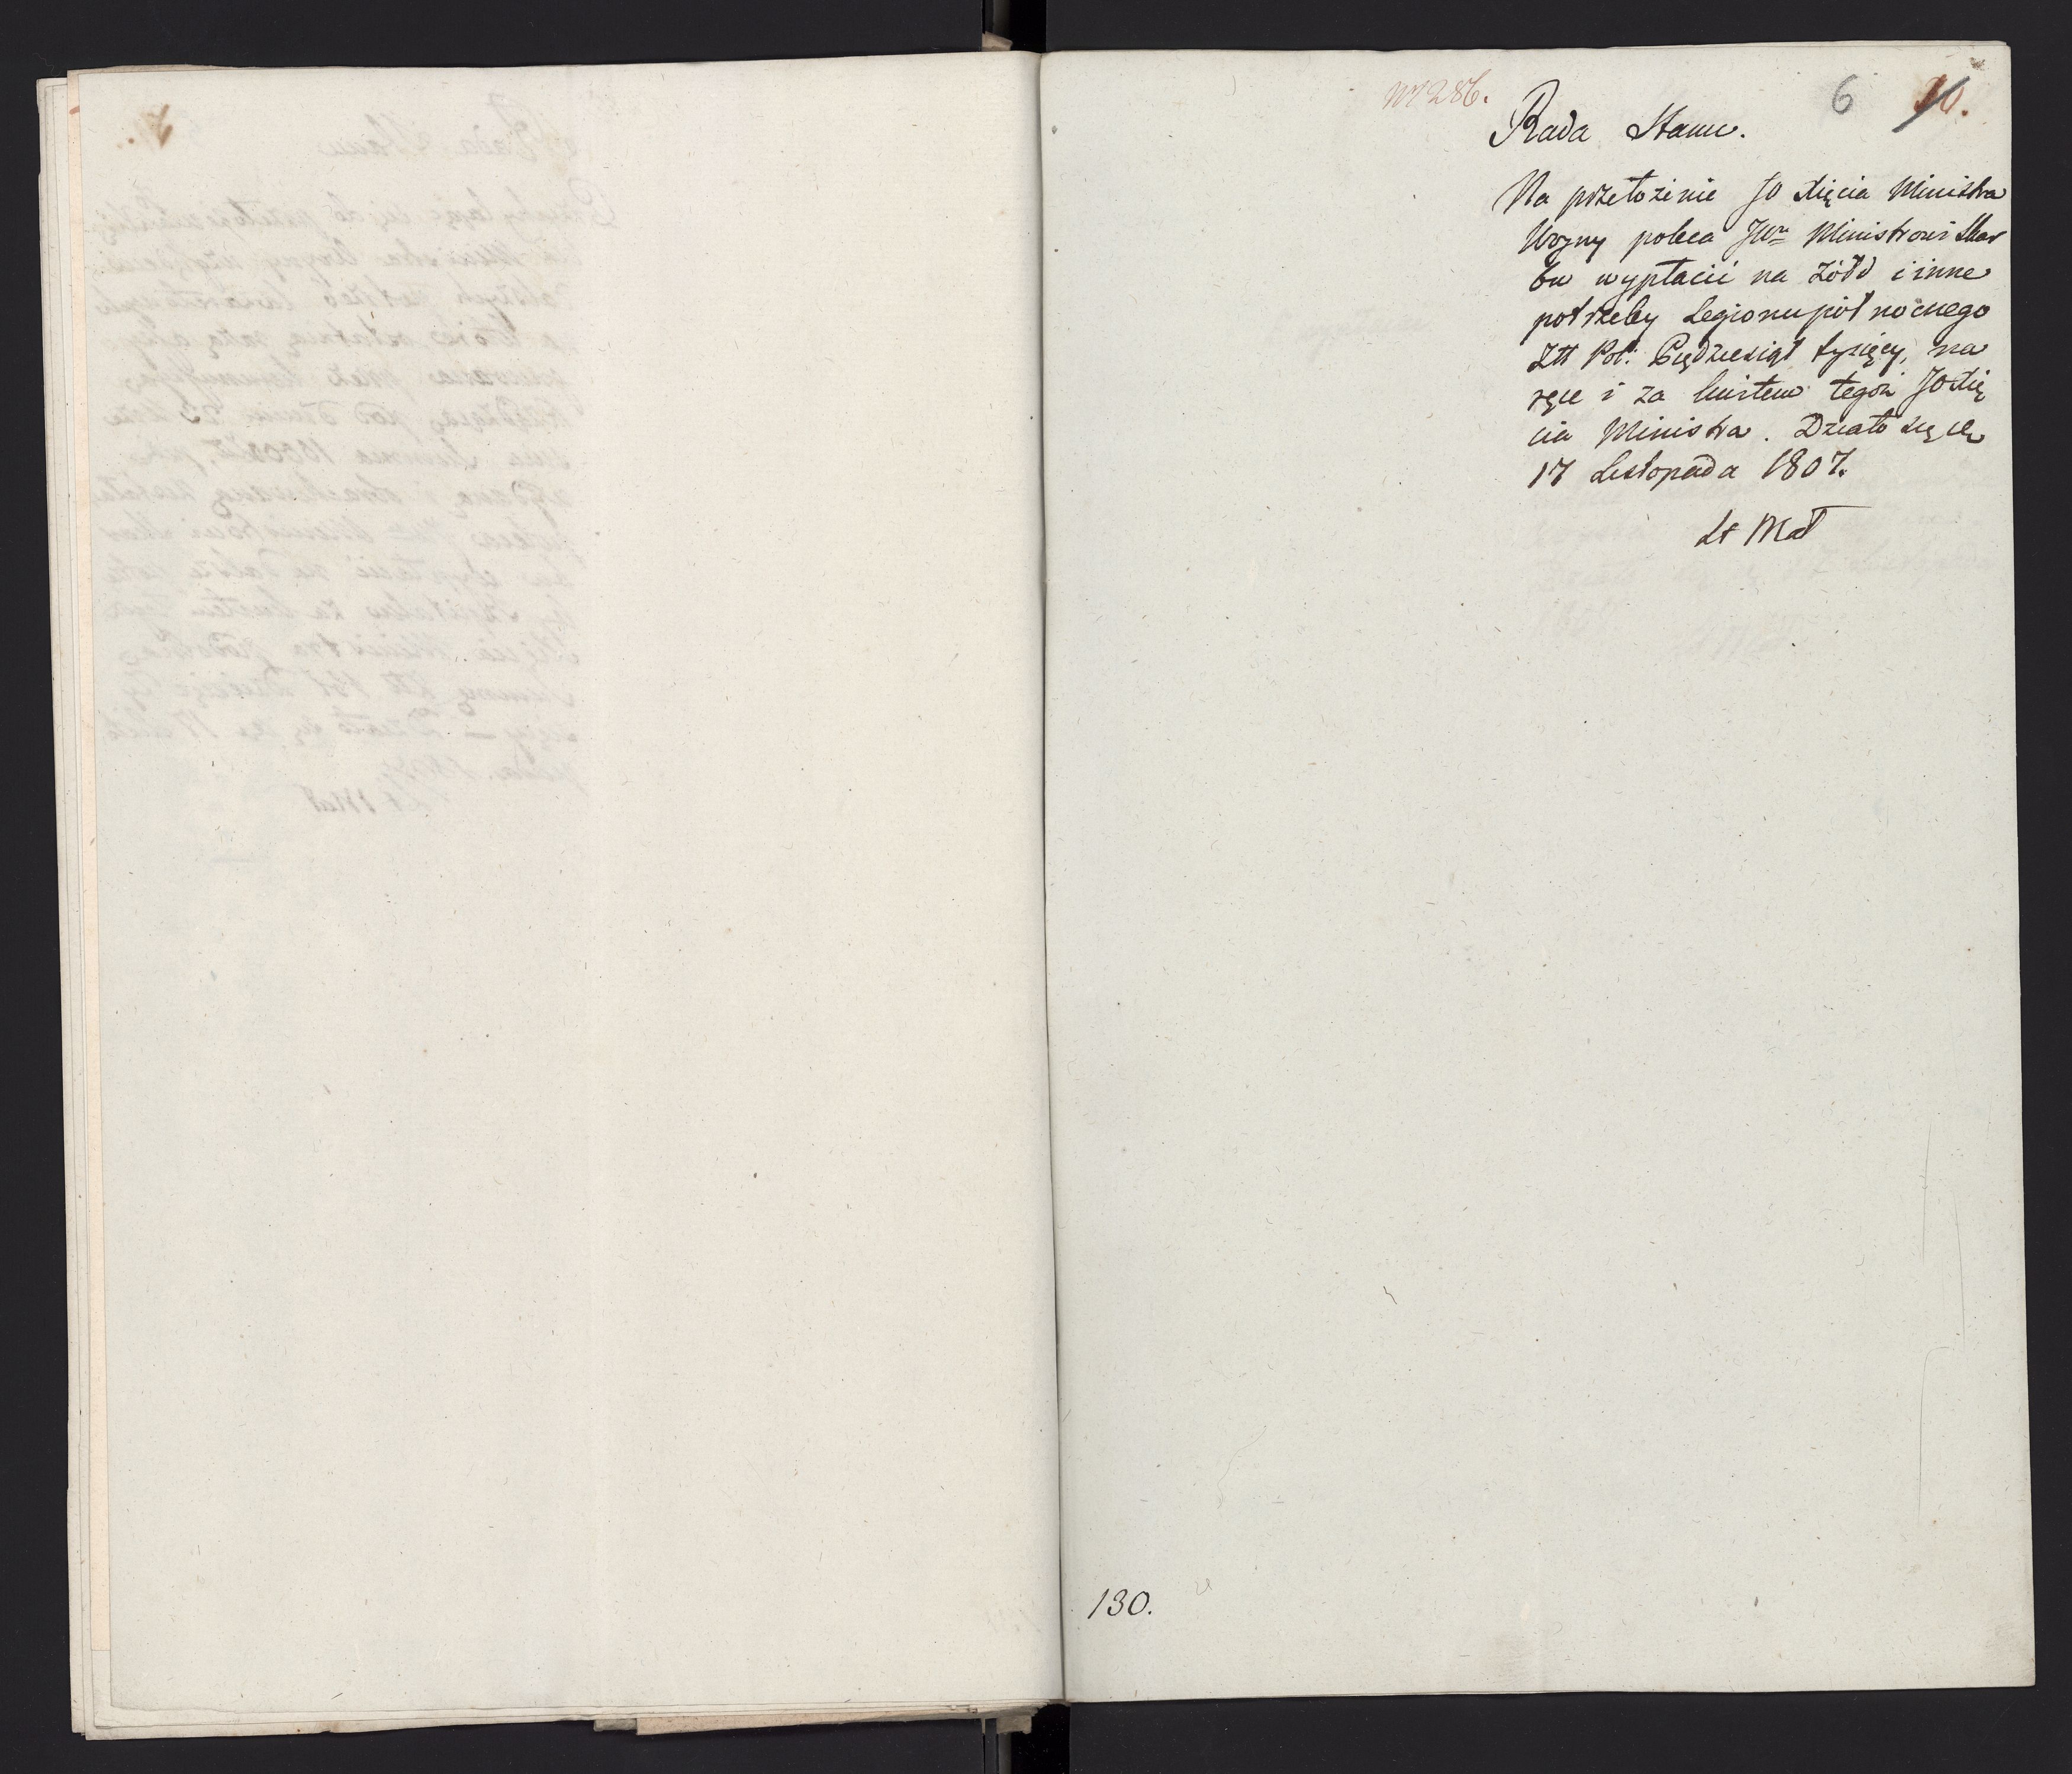 Nr 286.
6 10.
Rada Stanu.
Na przełożenie JO Xięcia Ministra
Woyny poleca JWu Ministrowi Skar
bu wypłacić na żółd i inne
potrzeby Legionu północnego
Złł Pol: Pięćdziesiąt tysięcy, na
ręce i za kwitem tegoż JO Xię
cia Ministra. Działo się
17 Listopada 1807.
St Mał
130.